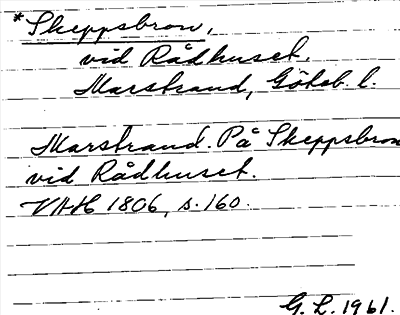 *Skeppsbron,
vid Rådhuset.
Marstrand, Göteb. l.
Marstrand. På Skeppsbron
vid Rådhuset.
VAH 1806, s. 160.
G. L. 1961.